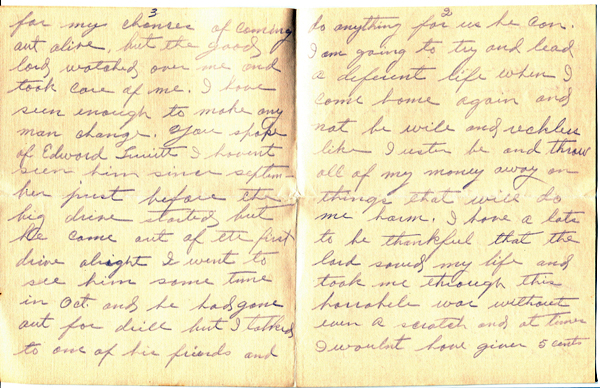 2
do anything for us he can.
I am going to try and lead
a deferent life when I
come home again and
not be wile and reckless
like I uster be and throw
all of my money away on
things that will do
me harm. I have a lots
to be thankful that the
lord saved my life and
took me through this
horrabele war without
even a scratch and at times
I wouldnt have given 5 cents
3
for my chances of coming
out alive, but the good
lord watched over me and
took care of me. I have
seen enough to make any
man change. You spoke
of Edward I havent
seen him since septem-
ber just before the
big drive started but
he came out of the first
drive alright I went to
see him some time
in Oct. and he had gone
out for drill but I talked
to one of his friends and